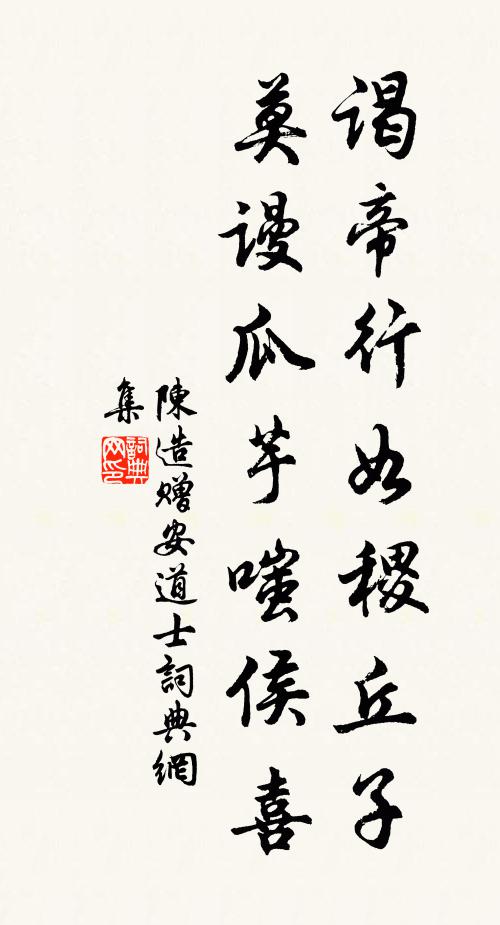 謁帝行如稷丘子
莫謾瓜芋嗤侯喜
陳造贈安道士詞典網
集
詞典網印